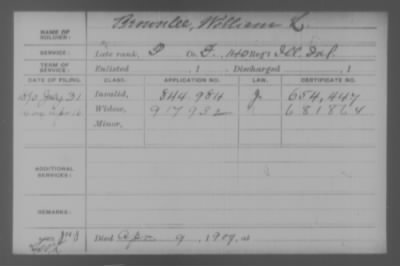 NAME OF SOLDIER: Brownlee, William L.
SERVICE: Late rank, P Co. F, 140 Reg't Ill Inf.
TERM OF SERVICE: Enlisted , 1 . Discharged , 1 .
DATE OF FILING. CLASS. APPLICATION NO. LAW. CERTIFICATE NO.
July 31 Invalid, 844.984 J. 654,447
Widow, 917932 681864
Minor,
ADDITIONAL SERVICES:
REMARKS:
Died Apr 9, 1909, at